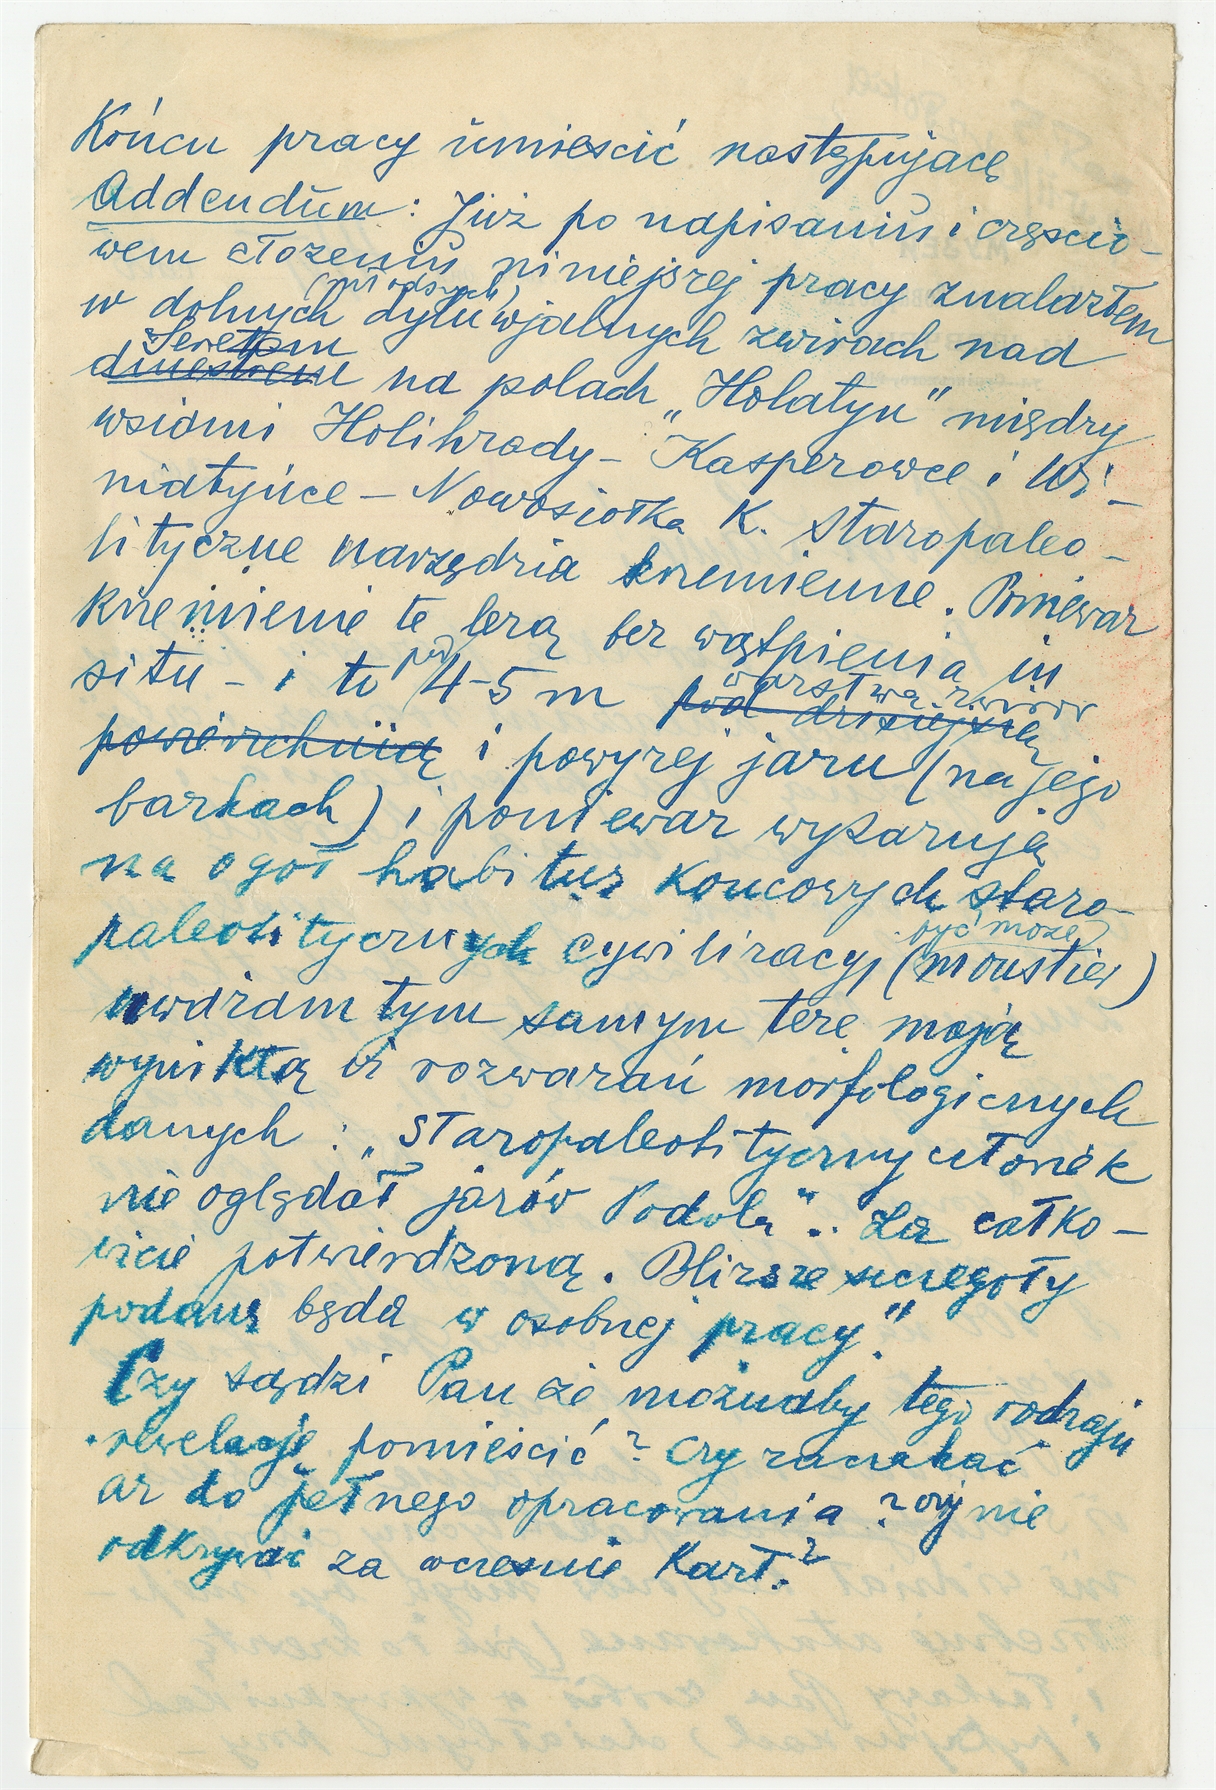 Końcu pracy umieścić następujące
Addendum: Już po napisaniu i częścio-
wem złożeniu niniejszej pracy znalazłem
(młodszych)
w dolnych dyluwjalnych żwirach nad
Seretem
dniestrem na polach „Holatyn" między
wsiami Holihrady - Kasperowce i Wi-
niatyńce - Nowosiołka K. staropaleo-
lityczne narzędzia krzemienne. Ponieważ
krzemienie te leżą bez wątpienia in
situ - i to pod 4-5 m warstwą żwirów
pod dzisiejszą
powierzchnią i powyżej jaru (na jego
barkach) i ponieważ wykazują
na ogół habitus końcowych staro-
być może
paleolitycznych cywilizacyj (moustier)
uważam tym samym tezę moją
wynikłą z rozważań morfologicznych
danych: „staropaleolityczny człowiek
nie oglądał jarów Podola".. za całko-
wicie potwierdzoną. Bliższe szczegóły
podane będą w osobnej pracy."
Czy sądzi Pan że możnaby tego rodzaju
rewelację pomieścić? Czy zaczekać
aż do pełnego opracowania? czy nie
odkrywać za wcześnie kart.?